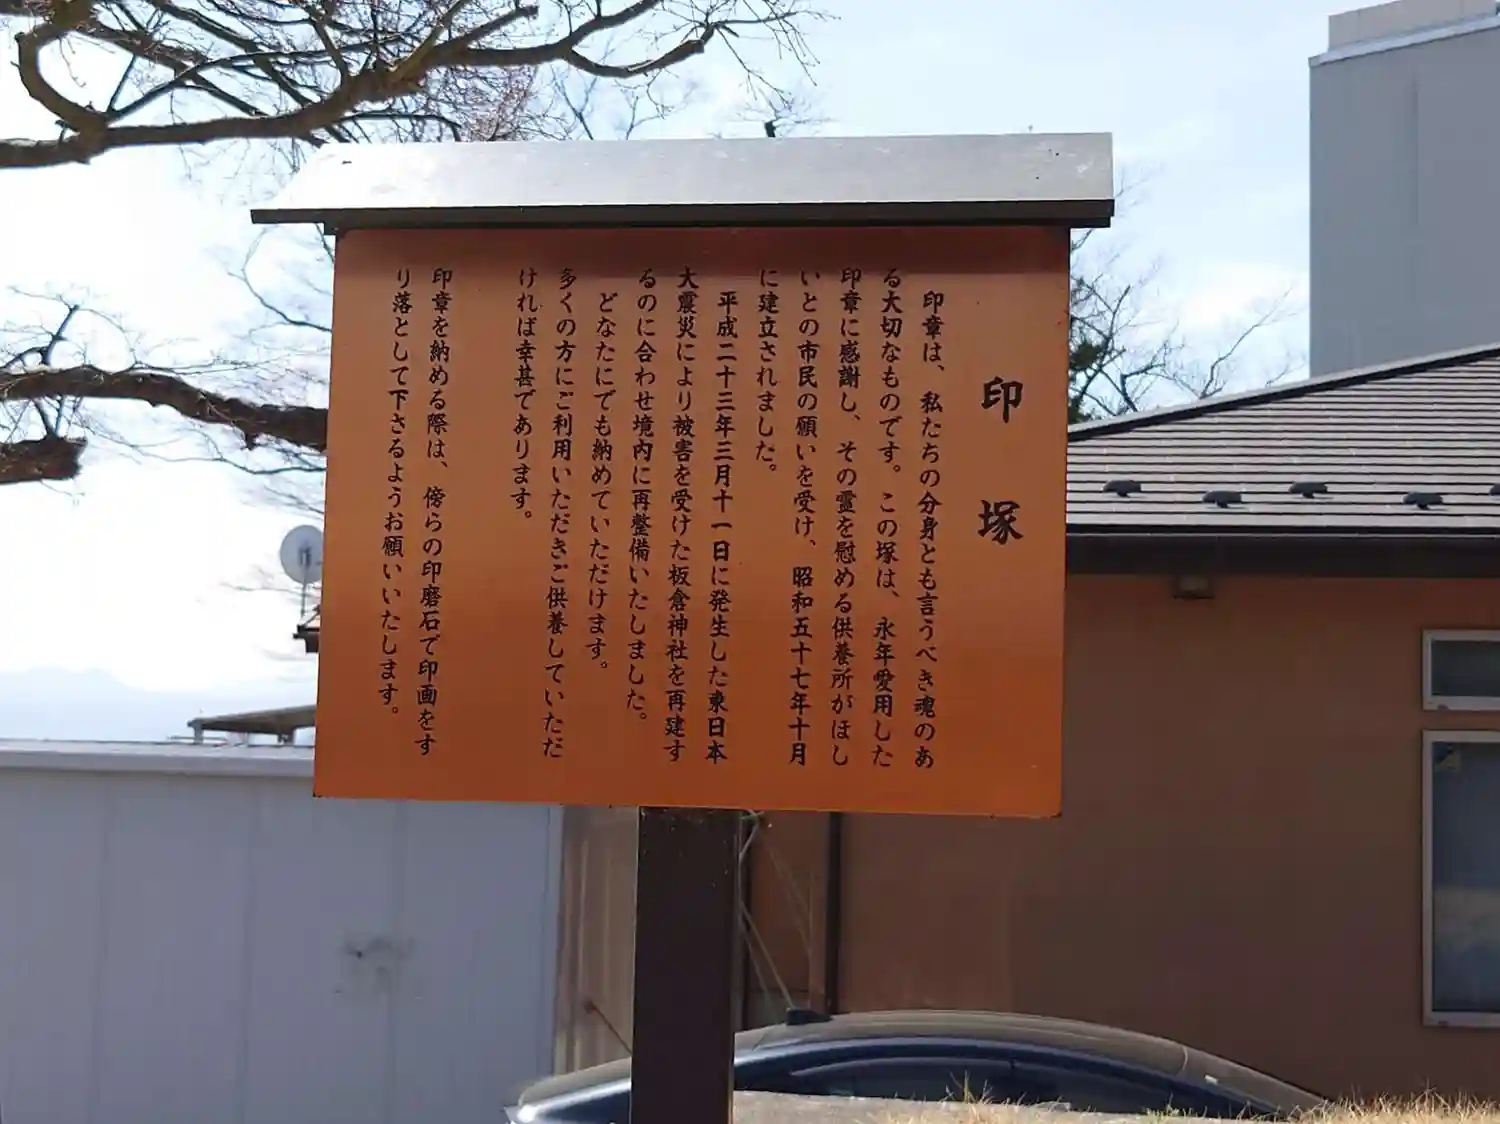 印塚
印章は、私たちの分身とも言うべき魂のあ
る大切なものです。この塚は、永年愛用した
印章に感謝し、その霊を慰める供養所がほし
いとの市民の願いを受け、昭和五十七年十月
に建立されました。
平成二十三年三月十一日に発生した東日本
大震災により被害を受けた板倉神社を再建す
るのに合わせ境内に再整備いたしました。
どなたにでも納めていただけます。
多くの方にご利用いただきご供養していただ
ければ幸甚であります。
印章を納める際は、傍らの印磨石で印画をす
り落として下さるようお願いいたします。